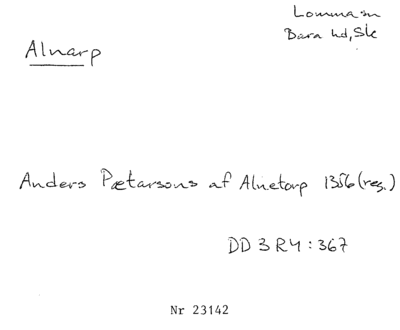 Lomma sn
Bara hd, Sk
Alnarp
Anders Pætarsons af Alnetorp 1356 (reg.)
DD 3 R 4 : 367
Nr 23142